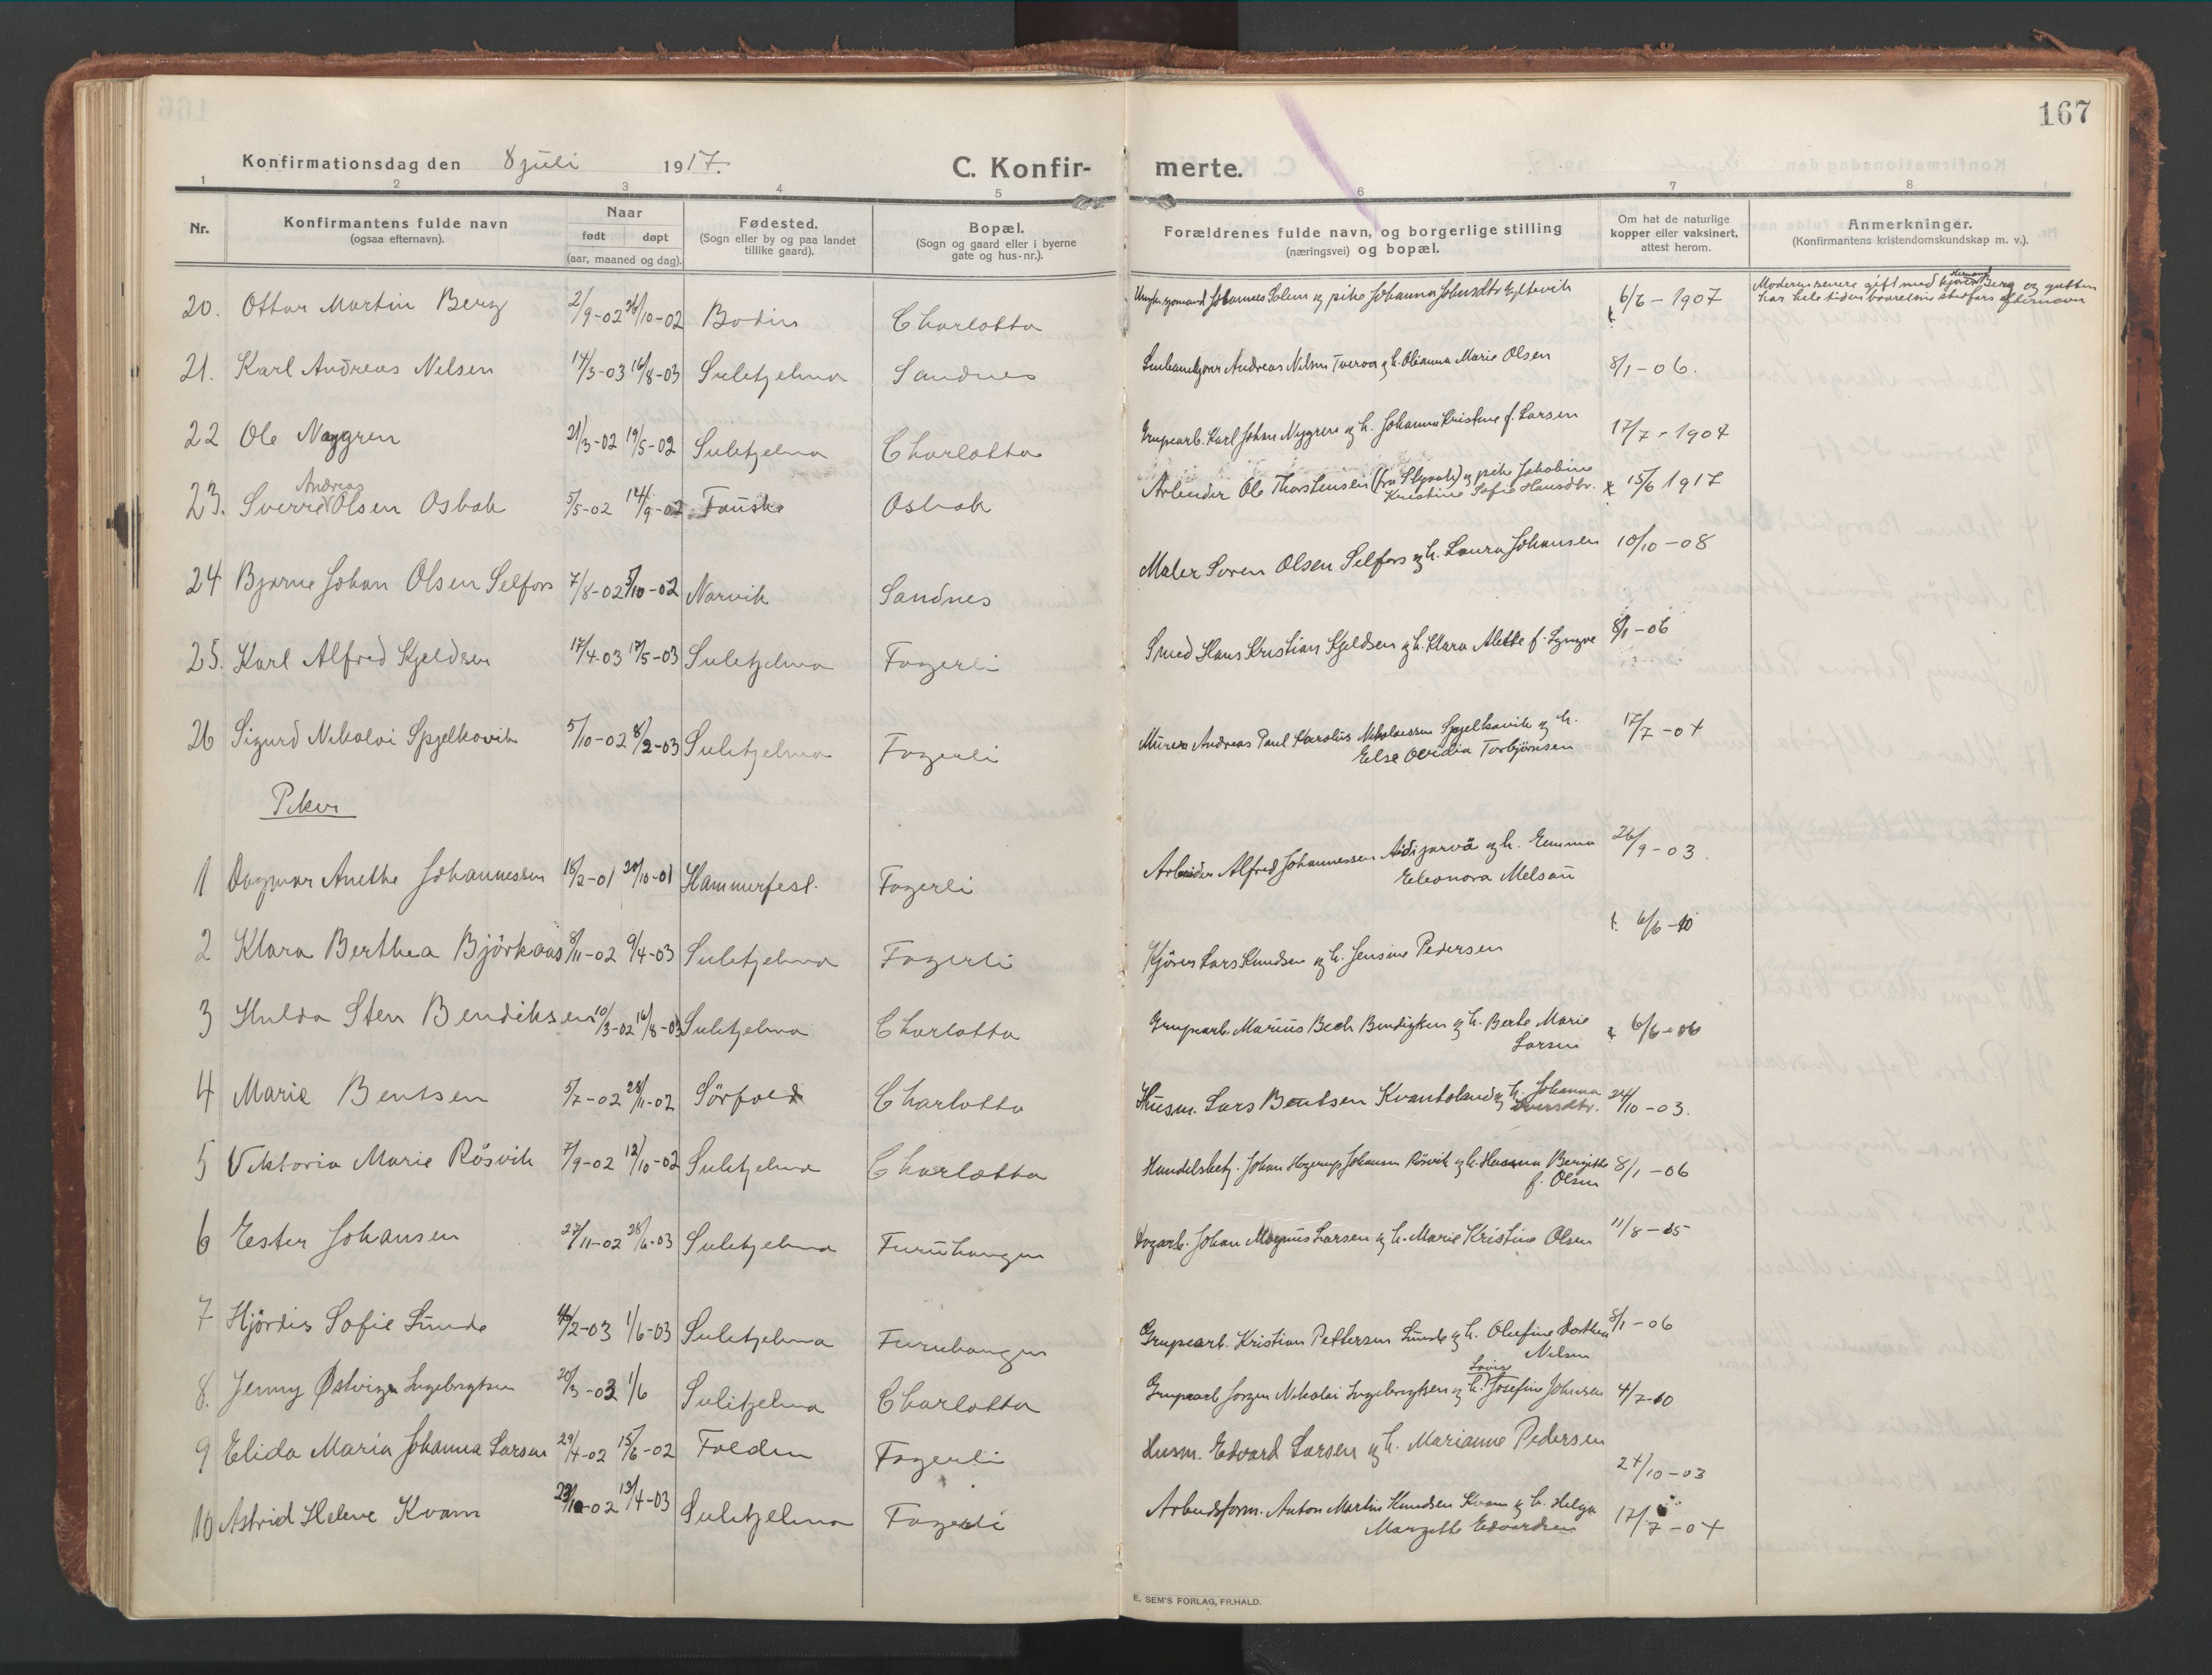 167
Konfirmationsdag den 8 juli 1917. C. Konfir- merte.
1 2 3 4 5 6 7 8
Nr. Konfirmantens fulde navn (ogsaa efternavn). Naar født døpt (aar, maaned og dag). Fødested. (Sogn eller by og paa landet tillike gaard). Bopæl. (Sogn og gaard eller i byerne gate og hus-nr.). Forældrenes fulde navn, og borgerlige stilling (næringsvei) og bopæl. Om hat de naturlige kopper eller vaksinert, attest herom. Anmerkninger. (Konfirmantens kristendomskundskap m. v.).
20. Ottar Martin Berg 2/9-02 26/10-02 Bodin Charlotta Johannes Solem og pike Johanna Johnsdtr 6/6-1907 Moderen senere gift med Berg og gutten
har hele tiden baaret sin stefars efternavn
21. Karl Andreas Nelsen 14/3-03 16/8-03 Sulitjelma Sandnes Andreas Nelsen Tveraa og h. Olianna Marie Olsen 8/1-06.
22 Ole Nygren 21/3-02 19/5-02 Sulitjelma Charlotta Grupearb. Karl Johan Nygren og h. Johanna Kristine f. Larsen 17/7-1904
23. Sverre Andreas Olsen Osbak 5/5-02 14/9-02 Fauske Osbak Arbeider Ole Thorstensen (fra ) og pike Jakobine
Kristine Sofie Hansdtr. 15/6 1917
24 Bjarne Johan Olsen Selfors 7/8-02 5/10-02 Narvik Sandnes Maler Soren Olsen Selfors og h. Laura Johansen 10/10-08
25. Karl Alfred Kjeldsen 17/4-03 17/5-03 Sulitjelma Fagerli Smed Hans Kristian Kjeldsen og h. Klara Alette f. Lyngve 8/1-06
26 Sigurd Nikolai Spjelkavik 5/10-02 8/2-03 Sulitjelma Fagerli Murer Andreas Paul Karolius Nikolaissen Spjelkavik og h.
Else Ovidia Torbjörnsen 17/7-04
Piker
1 Dagmar Anethe Johannessen 18/2-01 20/10-01 Hammerfest. Fagerli Arbeider Alfred Johannessen Aidijarvä og h. Emma
Eleonora Melsau 26/9-03.
2 Klara Berthea Björkaas 8/11-02 9/4-03 Sulitjelma Fagerli Kjörer Lars Knudsen og h. Jensine Pedersen 6/6-10
3 Hulda Sten Bendiksen 10/3-02 16/8-03 Sulitjelma Charlotta Grupearb. Marius Bech Bendigsen og h. Berte Marie
Larsen 6/6-06
4 Marie Bentsen 5/7-02 28/11-02 Sörfold Charlotta Husm. Lars Bentsen Kvantoland og h. Johanna
Iversdtr. 24/10-03.
5 Viktoria Marie Rösvik 7/9-02 12/10-02 Sulitjelma Charlotta Handelsbetj. Johan Hagerup Johansen Rösvik og h. Hassna Bergitte
f. Olsen 8/1-06
6 Ester Johansen 27/11-02 28/6-03 Sulitjelma Furuhaugen Dagarb. Johan Magnus Larsen og h. Marie Kristine Olsen 11/8-15
7 Hjördis Sofie Lunde /2-03 1/6-03 Sulitjelma Furuhaugen Grupearb. Kristian Pettersen Lunde og h. Olufine Dorthea
Nilsen 8/1-06
8. Jenny Østvige Ingebrigtsen 20/3-03 1/6 Sulitjelma Charlotta Grupearb Jorgen Nikolai Ingebrigtsen og h. Lovise Josefine Johnsen 4/7-10
9 Elida Maria Johanna Larsen 29/4-02 15/6-02 Folden Fagerli Husm. Edvard Larsen og h. Marianne Pedersen 24/10-03
10 Astrid Helene Kvam 23/10-02 13/4-03 Sulitjelma Fagerli Arbeidsform. Anton Martin Knudsen Kvam og h. Helga
Margitte Edvardsen 17/7-04
E. SEM'S FORLAG, FR.HALD.